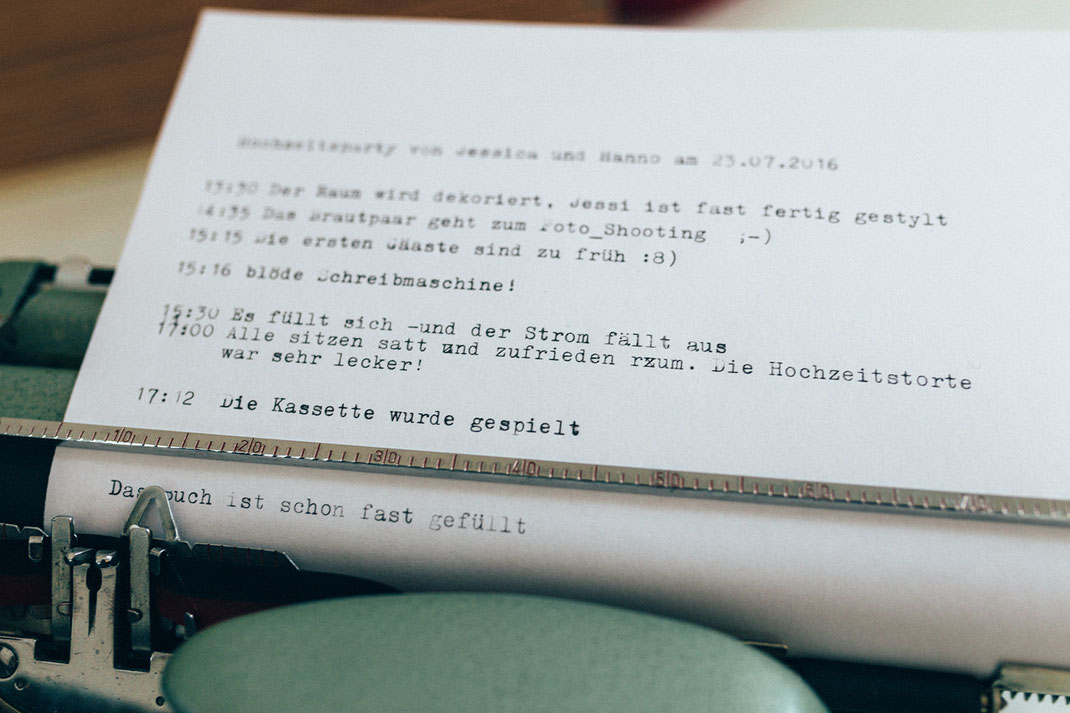 Hochzeitsparty von Jessica und Hanno am 23.07.2016
13:30 Der Raum wird dekoriert, Jessi ist fast fertig gestylt
14:35 Das Brautpaar geht zum Foto_Shooting ;-)
15:15 Die ersten Gäaste sind zu früh :8)
15:16 blöde Schreibmaschine!
15:30 Es füllt sich -und der Strom fällt aus
17:00 Alle sitzen satt und zufrieden rzum. Die Hochzeitstorte
war sehr lecker!
17:12 Die Kassette wurde gespielt
10 20 30 40 50 60 70
Das Buch ist schon fast gefüllt